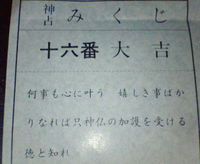 神占 みくじ
十六番 大吉
何事も心に叶う 嬉しき事ばか
りなれば只神仏の加護を受ける
徳と知れ